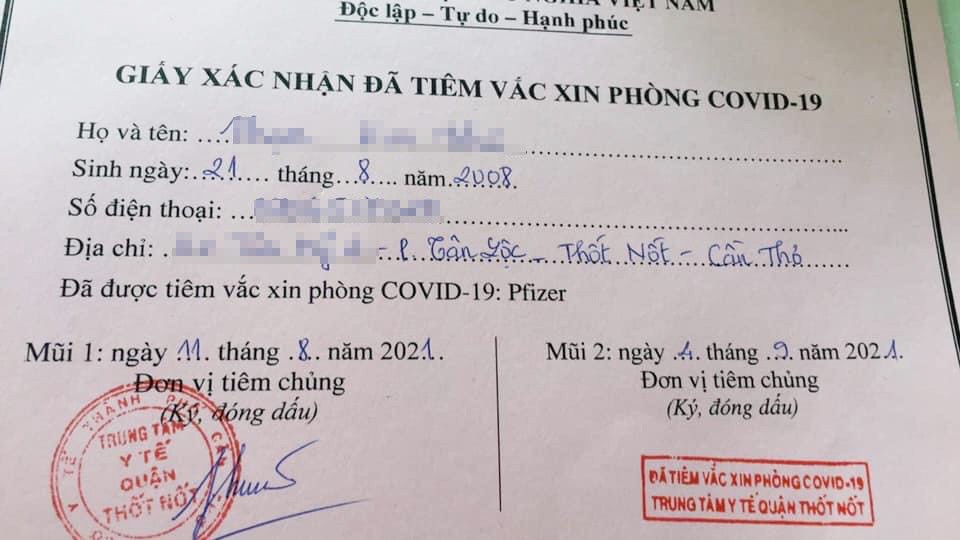 NGHĨA VIỆT NAM
Độc lập – Tự do – Hạnh phúc
GIẤY XÁC NHẬN ĐÃ TIÊM VẮC XIN PHÒNG COVID-19
Họ và tên: ....
Sinh ngày:..21.... tháng...8.... năm.2008.
Số điện thoại: ...
Địa chỉ: . - P. Tân Lộc - Thốt Nốt - Cần Thơ
Đã được tiêm vắc xin phòng COVID-19: Pfizer
Mũi 1: ngày .11. tháng .8.. năm 2021.
Đơn vị tiêm chủng
(Ký, đóng dấu)
Y TẾ THÀNH PHỐ
TRUNG TÂM
Y TẾ
QUẬN
THỐT NỐT
Mũi 2: ngày .4. tháng .9. năm 2021.
Đơn vị tiêm chủng
(Ký, đóng dấu)
ĐÃ TIÊM VẮC XIN PHÒNG COVID-19
TRUNG TÂM Y TẾ QUẬN THỐT NỐT